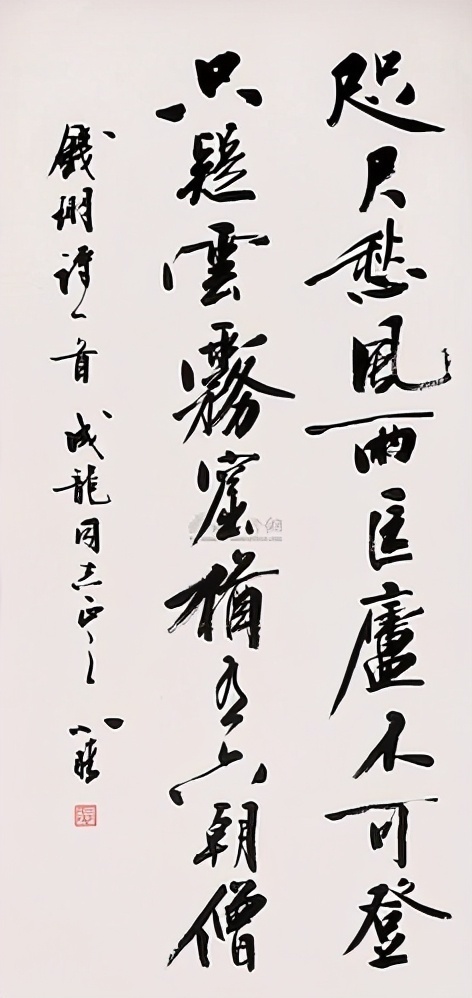 咫尺愁風雨匡廬不可登
只疑雲霧窟猶有六朝僧
錢珝詩一首 成龍同志正之